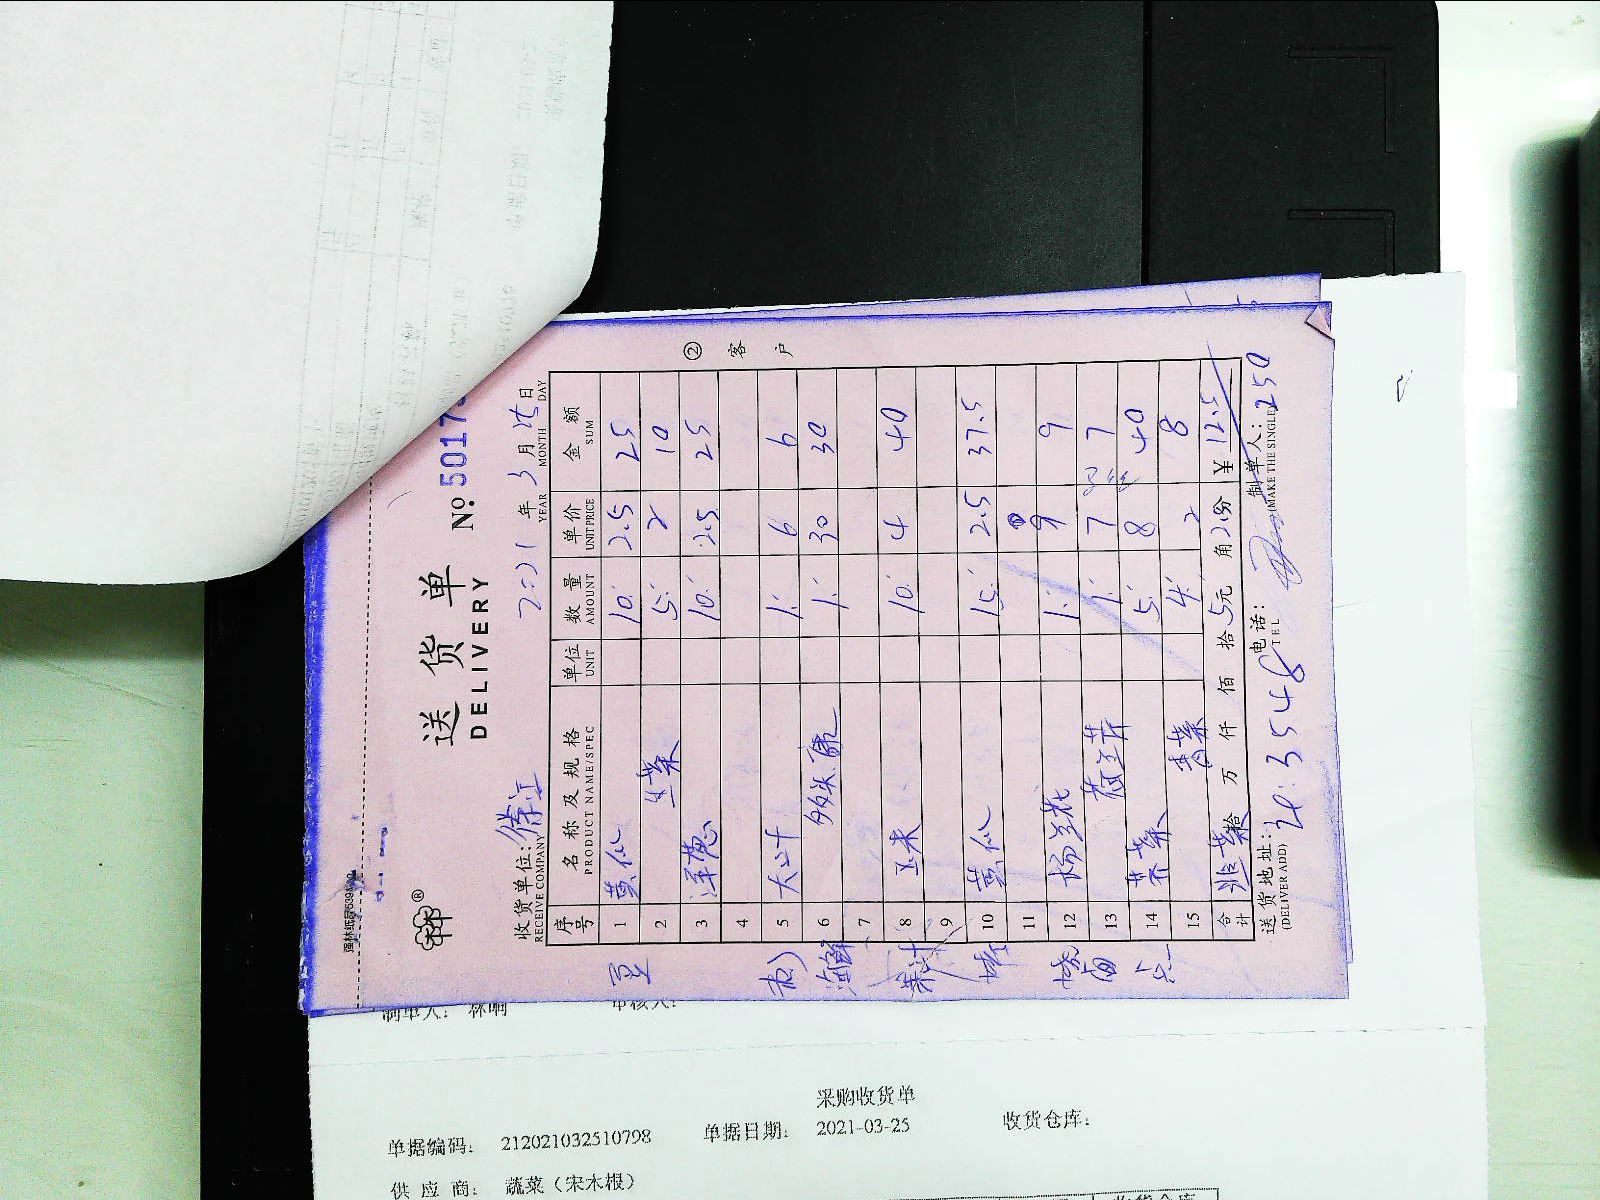 强林纸品
送货单
DELIVERY
№ 5017
收货单位:
RECEIVE COMPANY
2021 年 3 月 25 日
YEAR MONTH DAY
② 客户
序号 名称及规格 单位 数量 单价 金额
PRODUCT NAME/SPEC UNIT AMOUNT UNIT PRICE SUM
豆 1 黄瓜 10. 2.5 25
2 生菜 5. 2 10
3 洋葱 10. 2.5 25
4
5 大叶 1. 6 6
海鲜 6 1. 30 30
7
果汁 8 玉米 10. 4 40
9
10 黄瓜 15. 2.5 37.5
11
12 杨兰花 1. 9 9
13 荷兰芹 1. 7 7
14 芥菜 5. 8 40
15 香菜 4. 2 8
合计 韭菜 拾 万 仟 佰 拾 5 元 角 2.5 分 ¥ 12.5
送货地址: 电话: 制单人: 250
(DELIVER ADD) TEL (MAKE THE SINGLE)
21:3548
制单人: 林响 审核人:
采购收货单
单据编码: 212021032510798 单据日期: 2021-03-25 收货仓库:
供应商: 蔬菜(宋木根)
收货仓库